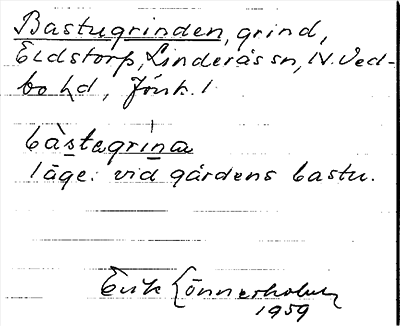 Bastugrinden, grind,
Eldstorp, Linderås sn, N. Ved-
bo hd, Jönk. l
bàstagrina
läge: vid gårdens bastu.
Erik Lönnerholm
1959